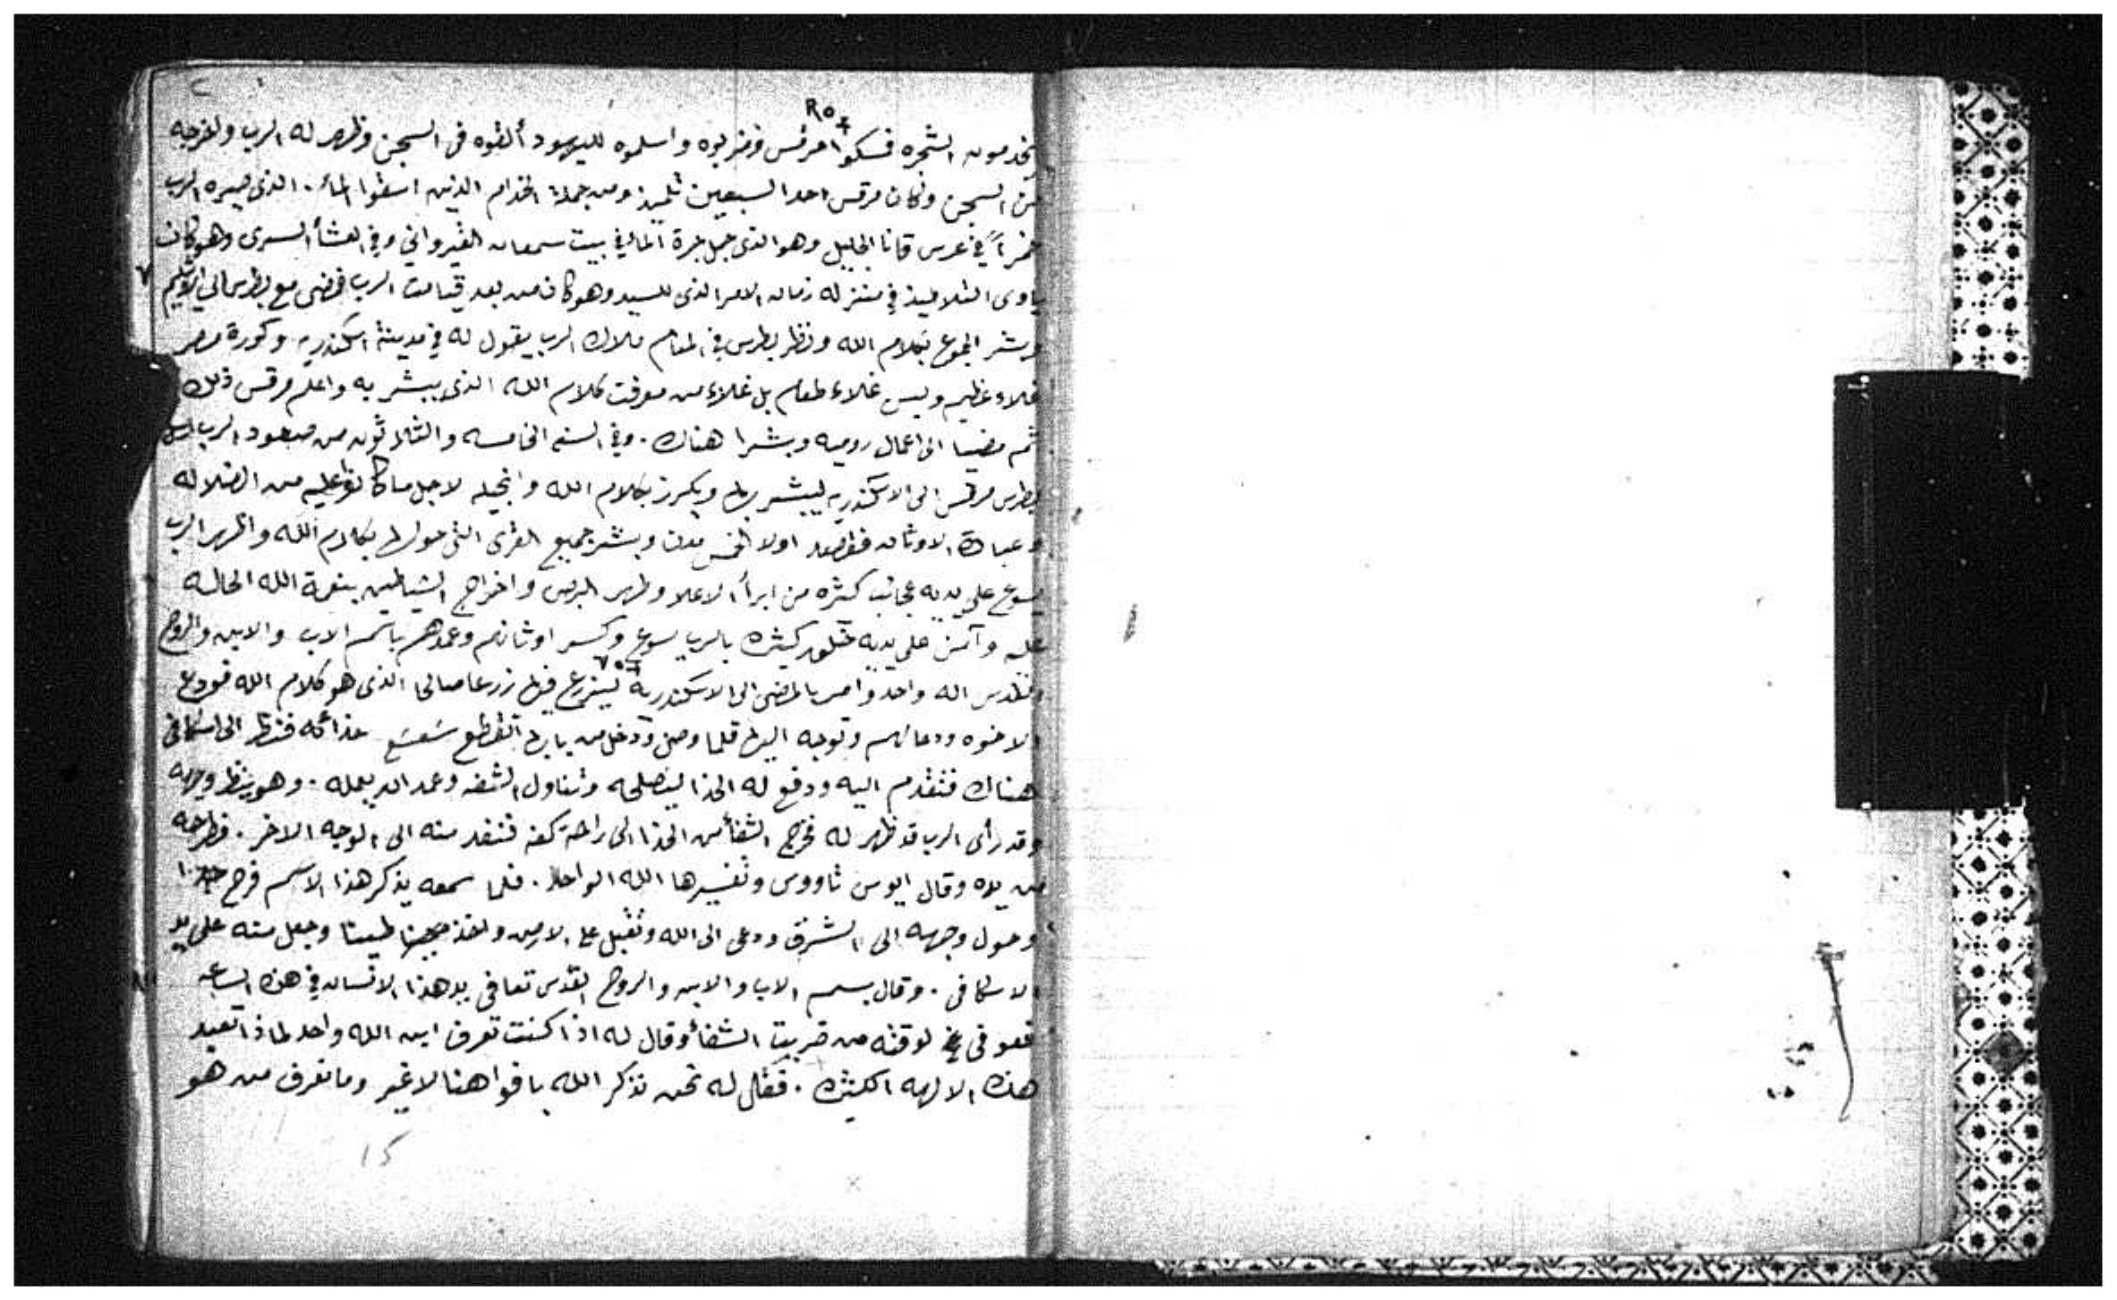 R٥٤
يخدمون الشجره فمسكوا مرقس وضربوه واسلموه لليهود ألقوه فى السجن وظهر له الرب واخرجه
من السجن وكان مرقس احد السبعين تلميذ ومن جملة الخدام الذين اسقوا الماء. الذى صيره الرب
خمراً في عرس قانا الجليل وهو الذى حمل جرة الما في بيت سمعان القيروانى وفي العشأ السرى وهو كان
ياوى التلاميذ في منزله زمان الامر الذى للسيد وهو كان من بعد قيامت الرب فمضى مع بطرس الي
وبشر الجموع بكلام الله ونظر بطرس في المنام ملاك الرب يقول له في مدينة اسكندريه وكورة مصر
غلاء عظيم وليس غلاء طعام بل غلاء من معرفت كلام الله الذى يبشر به واعلم مرقس ذلك
ثم مضيا الى اعمال روميه وبشرا هناك. وفي السنه الخامسه والثلاثون من صعود الرب ارسل
بطرس مرقس الى الاسكندريه ليبشر بها ويكرز بكلام الله وانجيله لاجل ما كانوا عليه من الضلاله
وعبادة الاوثان فقصد اولا الخمس مدن وبشر جميع القرى التى حولها بكلام الله واظهر الرب
يسوع على يديه عجائب كثره من ابرأ الاعلا وطهر البرص واخراج الشياطين بنعمة الله الحاله
عليه وآمن على يديه خلق كثيره بالرب يسوع وكسر اوثانهم وعمدهم باسم الاب والابن والروح
القدس اله واحد وامر بالمضى الى الاسكندرية ليزرع فيها زرعا صالحا الذى هو كلام الله فودع
الاخوه ودعا لهم وتوجه اليها فلما وصل ودخل من بابها انقطع شسع حذائه فنظر الى اسكافى
هناك فتقدم اليه ودفع له الحذا ليصلحه وتناول الشفه وعمد اليه بعمله. وهو ينظر وجهه
وقد رأى الرب قد ظهر له فخرج الشفأ من الحذا الى راحة كفه فنفد منه الى الوجه الاخر. فطرحه
من يده وقال ايوس ثاووس وتفسيرها الله الواحد. فلما سمعه يذكر هذا الاسم فرح جدا
وحول وجهه الى الشرق ودعى الى الله وتفل على الارض واخذ طينا وجعل منه على يد
الاسكافى. وقال بسم الاب والابن والروح القدس تعافى يد هذا الانسان في هذه الساعه
فعوفى لوقته من ضربت الشفأ وقال له اذا كنت تعرف اين الله واحد لماذا تعبد
هذه الالهه الكثيره. فقال له نحن نذكر الله بافواهنا لا غير وما نعرف من هو